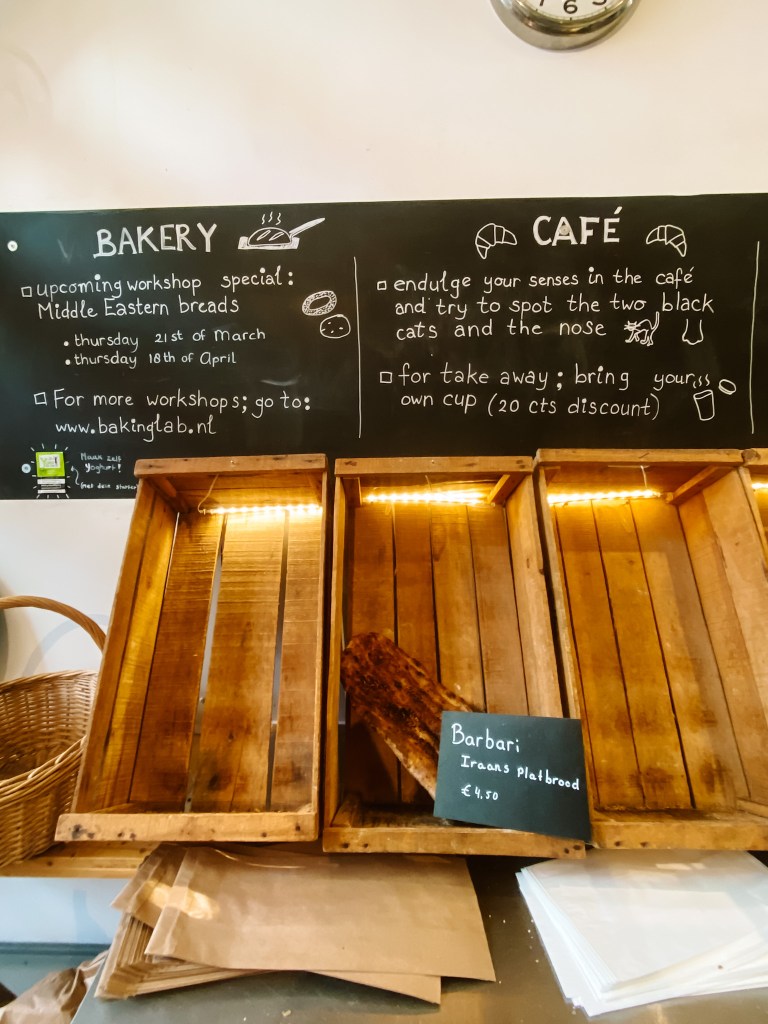 6
BAKERY
upcoming workshop special:
Middle Eastern breads
• thursday 21st of March
• thursday 18th of April
For more workshops; go to:
www.bakinglab.nl
Maak zelf
yoghurt!
CAFÉ
endulge your senses in the café
and try to spot the two black
cats and the nose
for take away; bring your
own cup (20 cts discount)
Barbari
Iraans platbrood
€4,50